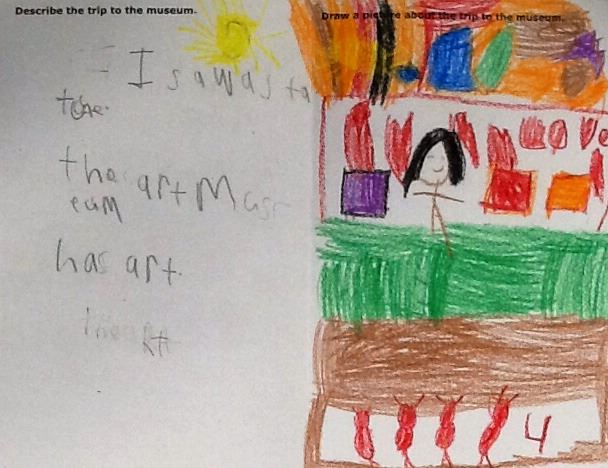 Describe the trip to the museum.
Draw a picture about the trip to the museum.
I sawasta
the art Mus
eam
has art.
4